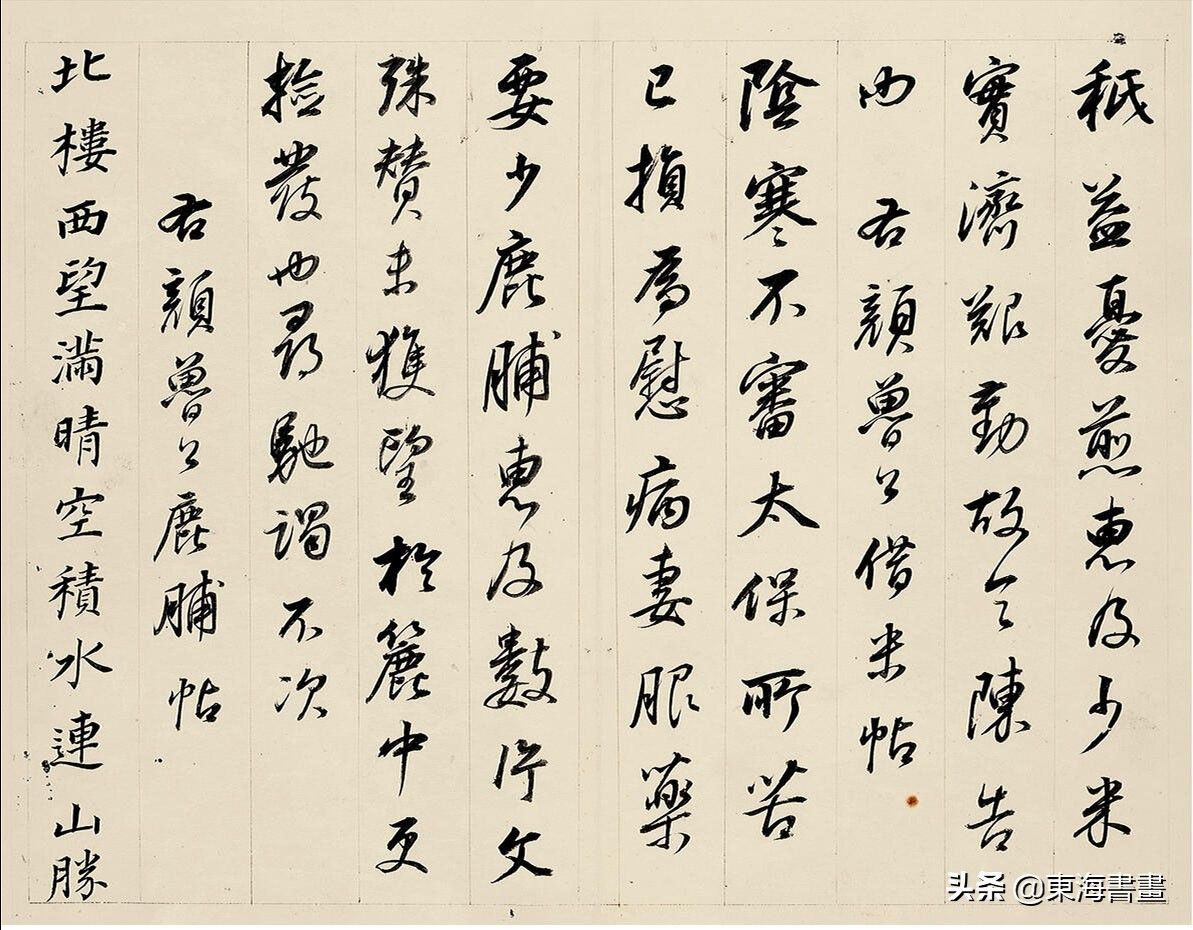 秖益憂煎惠及少米
實濟艱勤故令陳告
內　右顏魯公借米帖
陰寒不審太保所苦
已損為慰病妻服藥
要少鹿脯惠及數片文
殊贊未獲望於簏中更
撿發也尋馳謁不次
右顏魯公鹿脯帖
北樓西望滿晴空積水連山勝
头条 @東海書畫